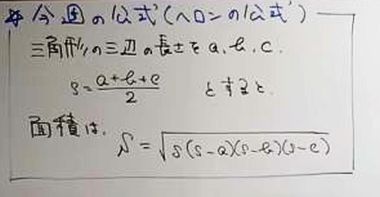 今週の公式(ヘロンの公式)
三角形の三辺の長さをa, b, c.
s = a+b+c / 2 とすると
面積は, S = √s(s-a)(s-b)(s-c)